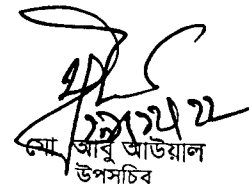 মোঃ আবু আউয়াল
উপসচিব